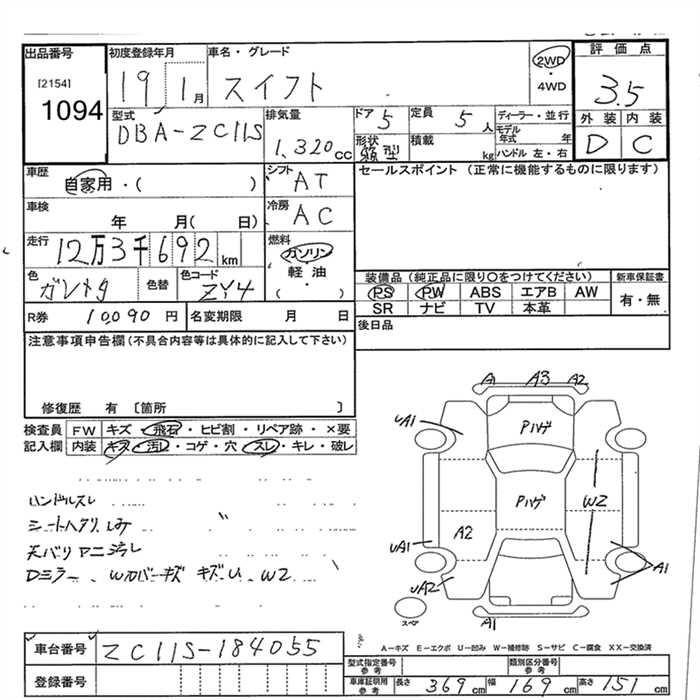 出品番号
[2154]
1094
初度登録年月
19 1月
車名・グレード
スイフト
2WD
・
4WD
評価点
3.5
外装 内装
D C
型式
DBA-ZC11S
排気量
1,320cc
ドア 5
形状 箱型
定員 5人
積載 kg
ディーラー・並行
モデル年式 年
ハンドル 左・右
車歴
自家用・( )
シフト
AT
車検
年 月( 日)
冷房
AC
走行
12万3千692km
燃料
ガソリン
軽油
( )
色
ガンメタ
色替
色コード
ZY4
R券 10,090円
名変期限 月 日
セールスポイント (正常に機能するものに限ります)
装備品(純正品に限り〇をつけてください)
PS PW ABS エアB AW
SR ナビ TV 本革
新車保証書
有・無
後日品
注意事項申告欄(不具合内容等は具体的に記入して下さい)
修復歴 有 〔箇所 〕
検査員 FW キズ・飛石・ヒビ割・リペア跡・×要
記入欄 内装 キズ・汚レ・コゲ・穴・スレ・キレ・破レ
ハンドルスレ
シートヘタリ、シミ 〃
天バリ ヤニ汚レ
Dミラー、Wカバーキズ キズU、W2
A A3 A2
UA1
Pハゲ
Pハゲ
W2
A2
UA1
UA2
A1
A1
スペア
A-キズ E-エクボ U-凹み W-補修跡 S-サビ C-腐食 XX-交換済
車台番号 ZC11S-184055
登録番号
型式指定番号 参考
類別区分番号 参考
車庫証明用 参考 長さ 369cm 幅 169cm 高さ 151cm